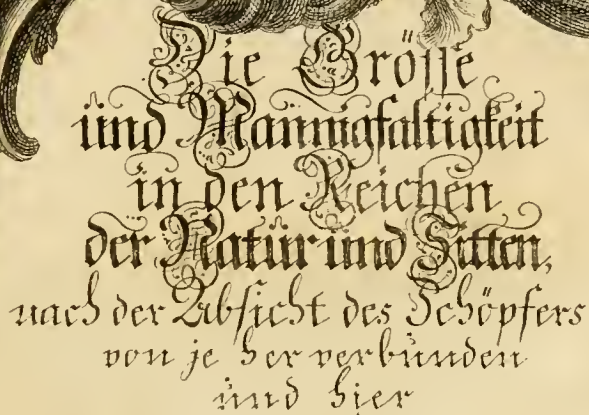 Die Grösse
und Mannigfaltigkeit
in den Reichen
der Natur und Sitten,
nach der Absicht des Schöpfers
von je her verbunden
und hier